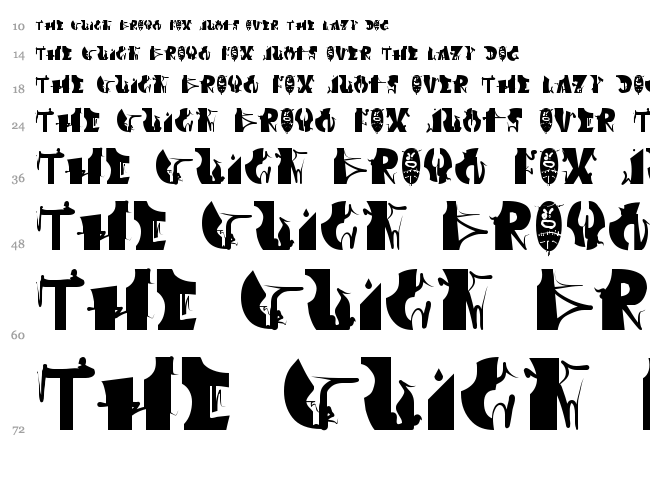 10 THE QUICK BROWN FOX JUMPS OVER THE LAZY DOG
14 THE QUICK BROWN FOX JUMPS OVER THE LAZY DOG
18 THE QUICK BROWN FOX JUMPS OVER THE LAZY DO
24 THE QUICK BROWN FOX JUMPS OVER T
36 THE QUICK BROWN FOX J
48 THE QUICK BROWN
60 THE QUICK BR
72 THE QUICK